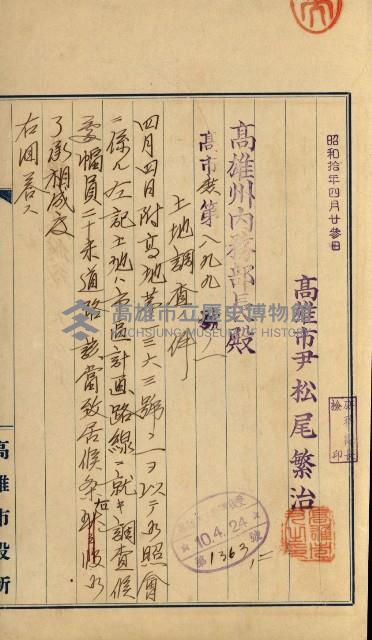 昭和拾年四月廿參日
高雄市尹松尾繁治
高雄州內務部長殿
高市 第八九九號ノ一
土地調查ノ件
四月四日附高地第三六三號ノ一ヲ以テ 照會
ニ係ル左記土地ハ 計画路線ニ就キ調查候
處幅員二十米道路ニ該當致居候
了承相成度
右回答ス
10.4.24
第1363號
高雄市役所
高雄市立歷史博物館
KAOHSIUNG MUSEUM OF HISTORY